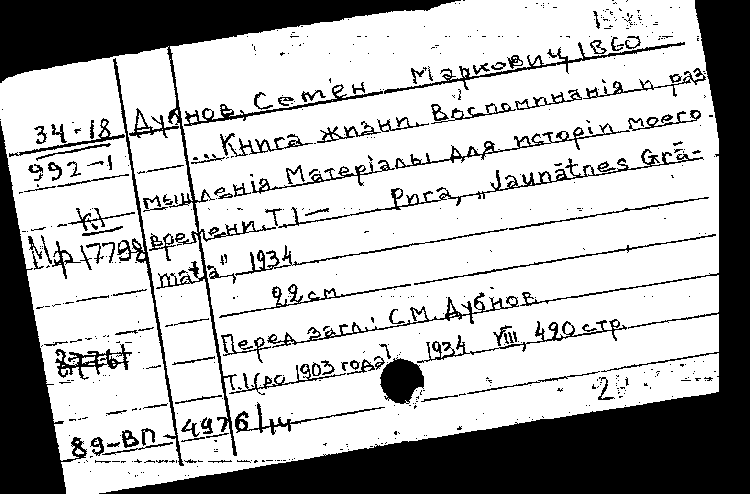 34-18
992-1
К1
Мф 17798
Дубнов, Семен Маркович, 1860
... Книга жизни. Воспоминанія и раз
мышленія. Матеріалы для исторіи моего
времени. Т.1 — Рига, "Jaunātnes Grā-
mata", 1934.
22 см.
Перед загл.: С.М. Дубнов.
Т.1 (до 1903 года) 1934. VIII, 420 стр.
89-ВП-4976/14